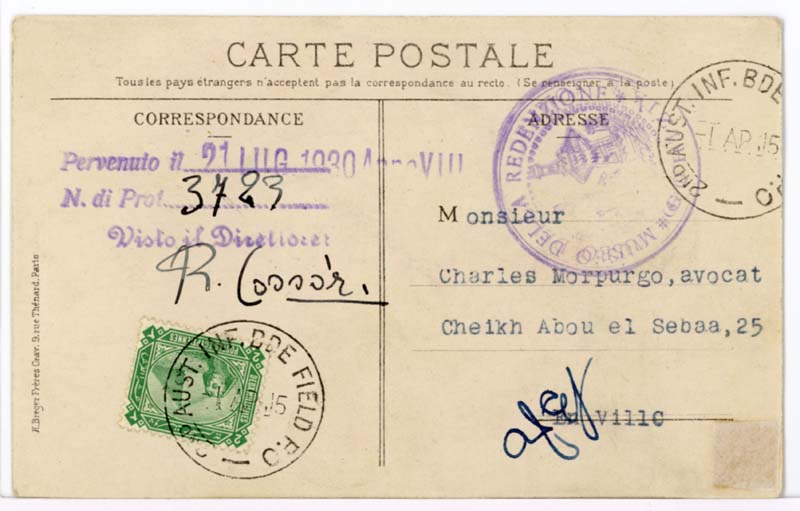 CARTE POSTALE
Tous les pays étrangers n'acceptent pas la correspondance au recto. (Se renseigner à la poste)
CORRESPONDANCE
ADRESSE
Pervenuto il 21 LUG 1930 Anno VIII
N. di Prot. 3723
Visto il Direttore:
R. Cossár.
MUSEO DELLA REDENZIONE
2ND AUST. INF. BDE
AP 15
P.O
Monsieur
Charles Morpurgo, avocat
Cheikh Abou el Sebaa, 25
En Ville
2ND AUST. INF. BDE FIELD P.O
AP 15
A. Breger Frères Grav. 9, rue Thénard, Paris